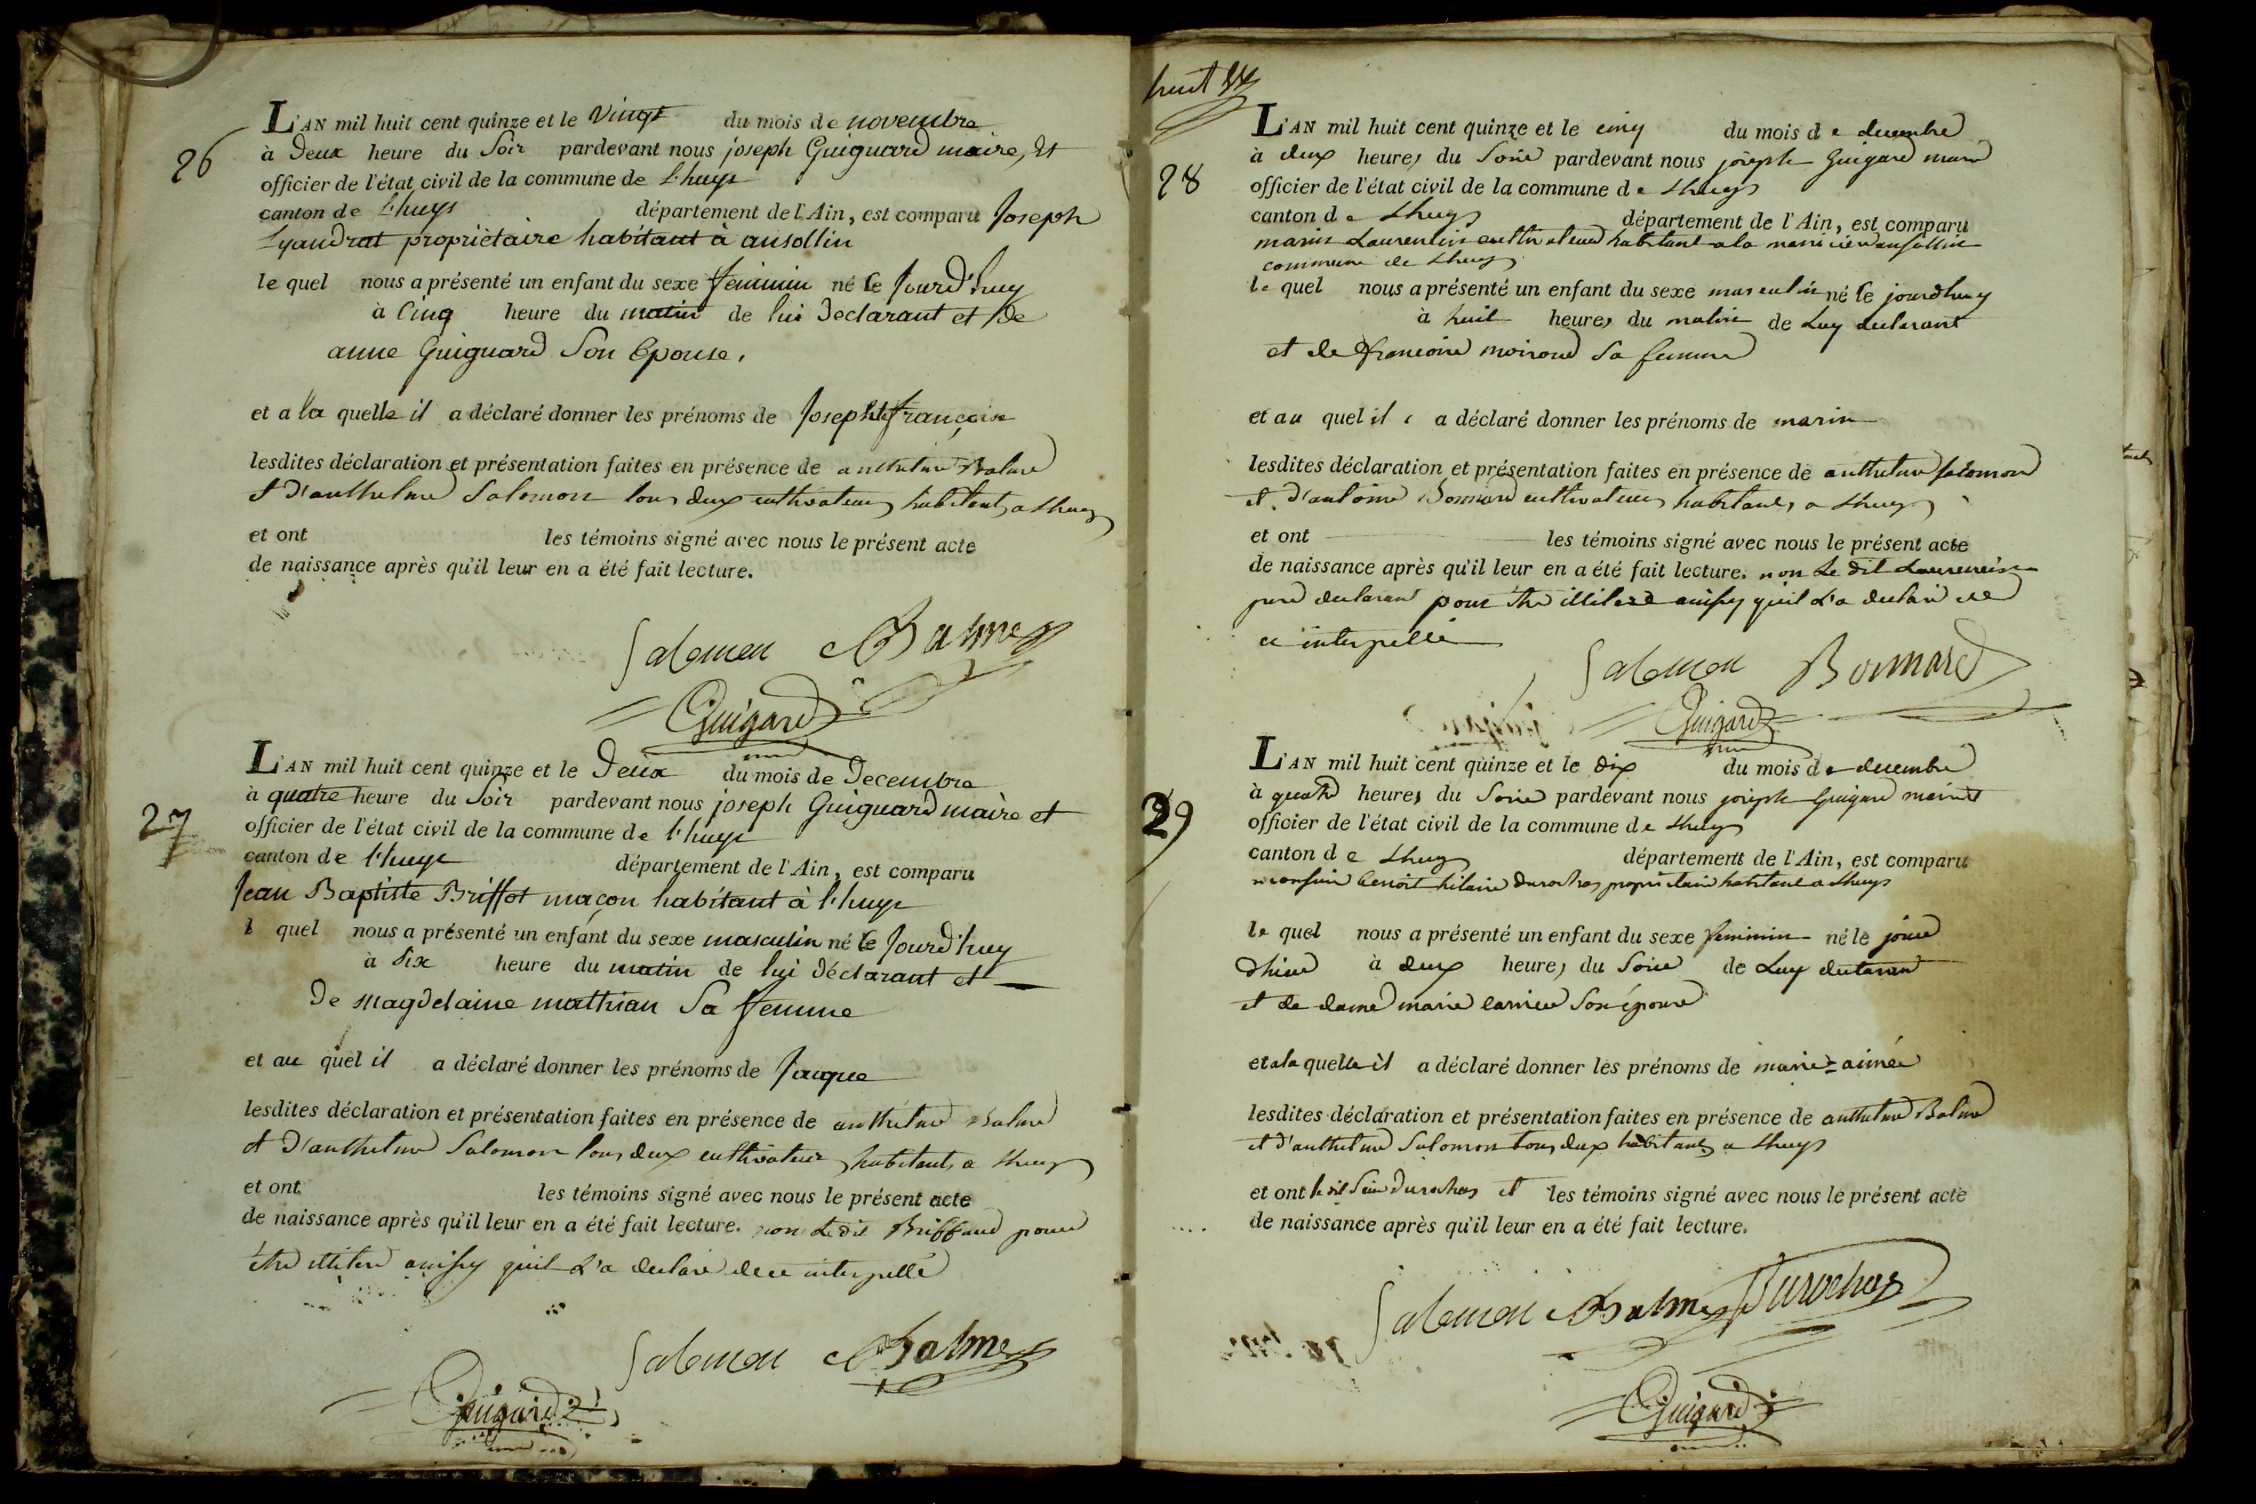 26
L'AN mil huit cent quinze et le vingt du mois de novembre
à Deux heure du Soir pardevant nous joseph Guiguard maire, et
officier de l'état civil de la commune de L'huys
canton de L'huys département de l'Ain, est comparu Joseph
Lyaudrat propriètaire habitant à ansollin
le quel nous a présenté un enfant du sexe feminin né le Jourd'huy
à Cinq heure du matin de lui Declarant et De
anne Guiguard Son Epouse,
et a la quelle il a déclaré donner les prénoms de Josephte françoise
lesdites déclaration et présentation faites en présence de anthelme Balme
et d'anthelme Salomon tous deux cultivateurs habitants a Lhuys
et ont les témoins signé avec nous le présent acte
de naissance après qu'il leur en a été fait lecture.
Salomon Balme
Guigard
27
L'AN mil huit cent quinze et le Deux du mois de Decembre
à quatre heure du Soir pardevant nous joseph Guiguard maire et
officier de l'état civil de la commune de l'huys
canton de l'huys département de l'Ain, est comparu
Jean Baptiste Briffot maçon habitant à l'huys
l quel nous a présenté un enfant du sexe masculin né le Jourd'huy
à Six heure du matin de lui Déclarant et
De magdelaine mathian Sa femme
et au quel il a déclaré donner les prénoms de Jauque
lesdites déclaration et présentation faites en présence de anthelme Balme
et d'anthelme Salomon tous deux cultivateurs habitants a Lhuys
et ont les témoins signé avec nous le présent acte
de naissance après qu'il leur en a été fait lecture. non Ledit Briffaud pour
être illiteré ainsy quil L'a declaré de ce interpellé
Salomon Balme
Guigard
huit
28
L'AN mil huit cent quinze et le cinq du mois de decembre
à deux heures du Soir pardevant nous joseph Guigard maire
officier de l'état civil de la commune de Lhuys
canton de Lhuys département de l'Ain, est comparu
marin Laurencin cultivateur habitant a la ansollin
commune de Lhuys
le quel nous a présenté un enfant du sexe masculin né le jourdhuy
à huit heures du matin de Luy declarant
et de francoise moiroud sa femme
et au quel il a déclaré donner les prénoms de marin
lesdites déclaration et présentation faites en présence de anthelme Salomon
et d'antoine Bonnard cultivateurs habitants a Lhuys
et ont les témoins signé avec nous le présent acte
de naissance après qu'il leur en a été fait lecture. non Le dit Laurencin
pere declarant pour être illiteré ainsy quil L'a declaré de
ce interpellé
Salomon Bonnard
Guigard
29
L'AN mil huit cent quinze et le dix du mois de decembre
à quatre heures du Soir pardevant nous joseph Guigard maire et
officier de l'état civil de la commune de Lhuys
canton de Lhuys département de l'Ain, est comparu
monsieur benoit hilaire Durochas propriétaire habitant a Lhuys
le quel nous a présenté un enfant du sexe feminin né le jour
dhier à deux heures du Soir de Luy declarant
et de dame marie carrier Son épouse
et a la quelle il a déclaré donner les prénoms de marie=aimée
lesdites déclaration et présentation faites en présence de anthelme Balme
et d'anthelme Salomon tous deux habitants a Lhuys
et ont le dit Sieur Durochas et les témoins signé avec nous le présent acte
de naissance après qu'il leur en a été fait lecture.
Salomon Balme Durochas
Guigard